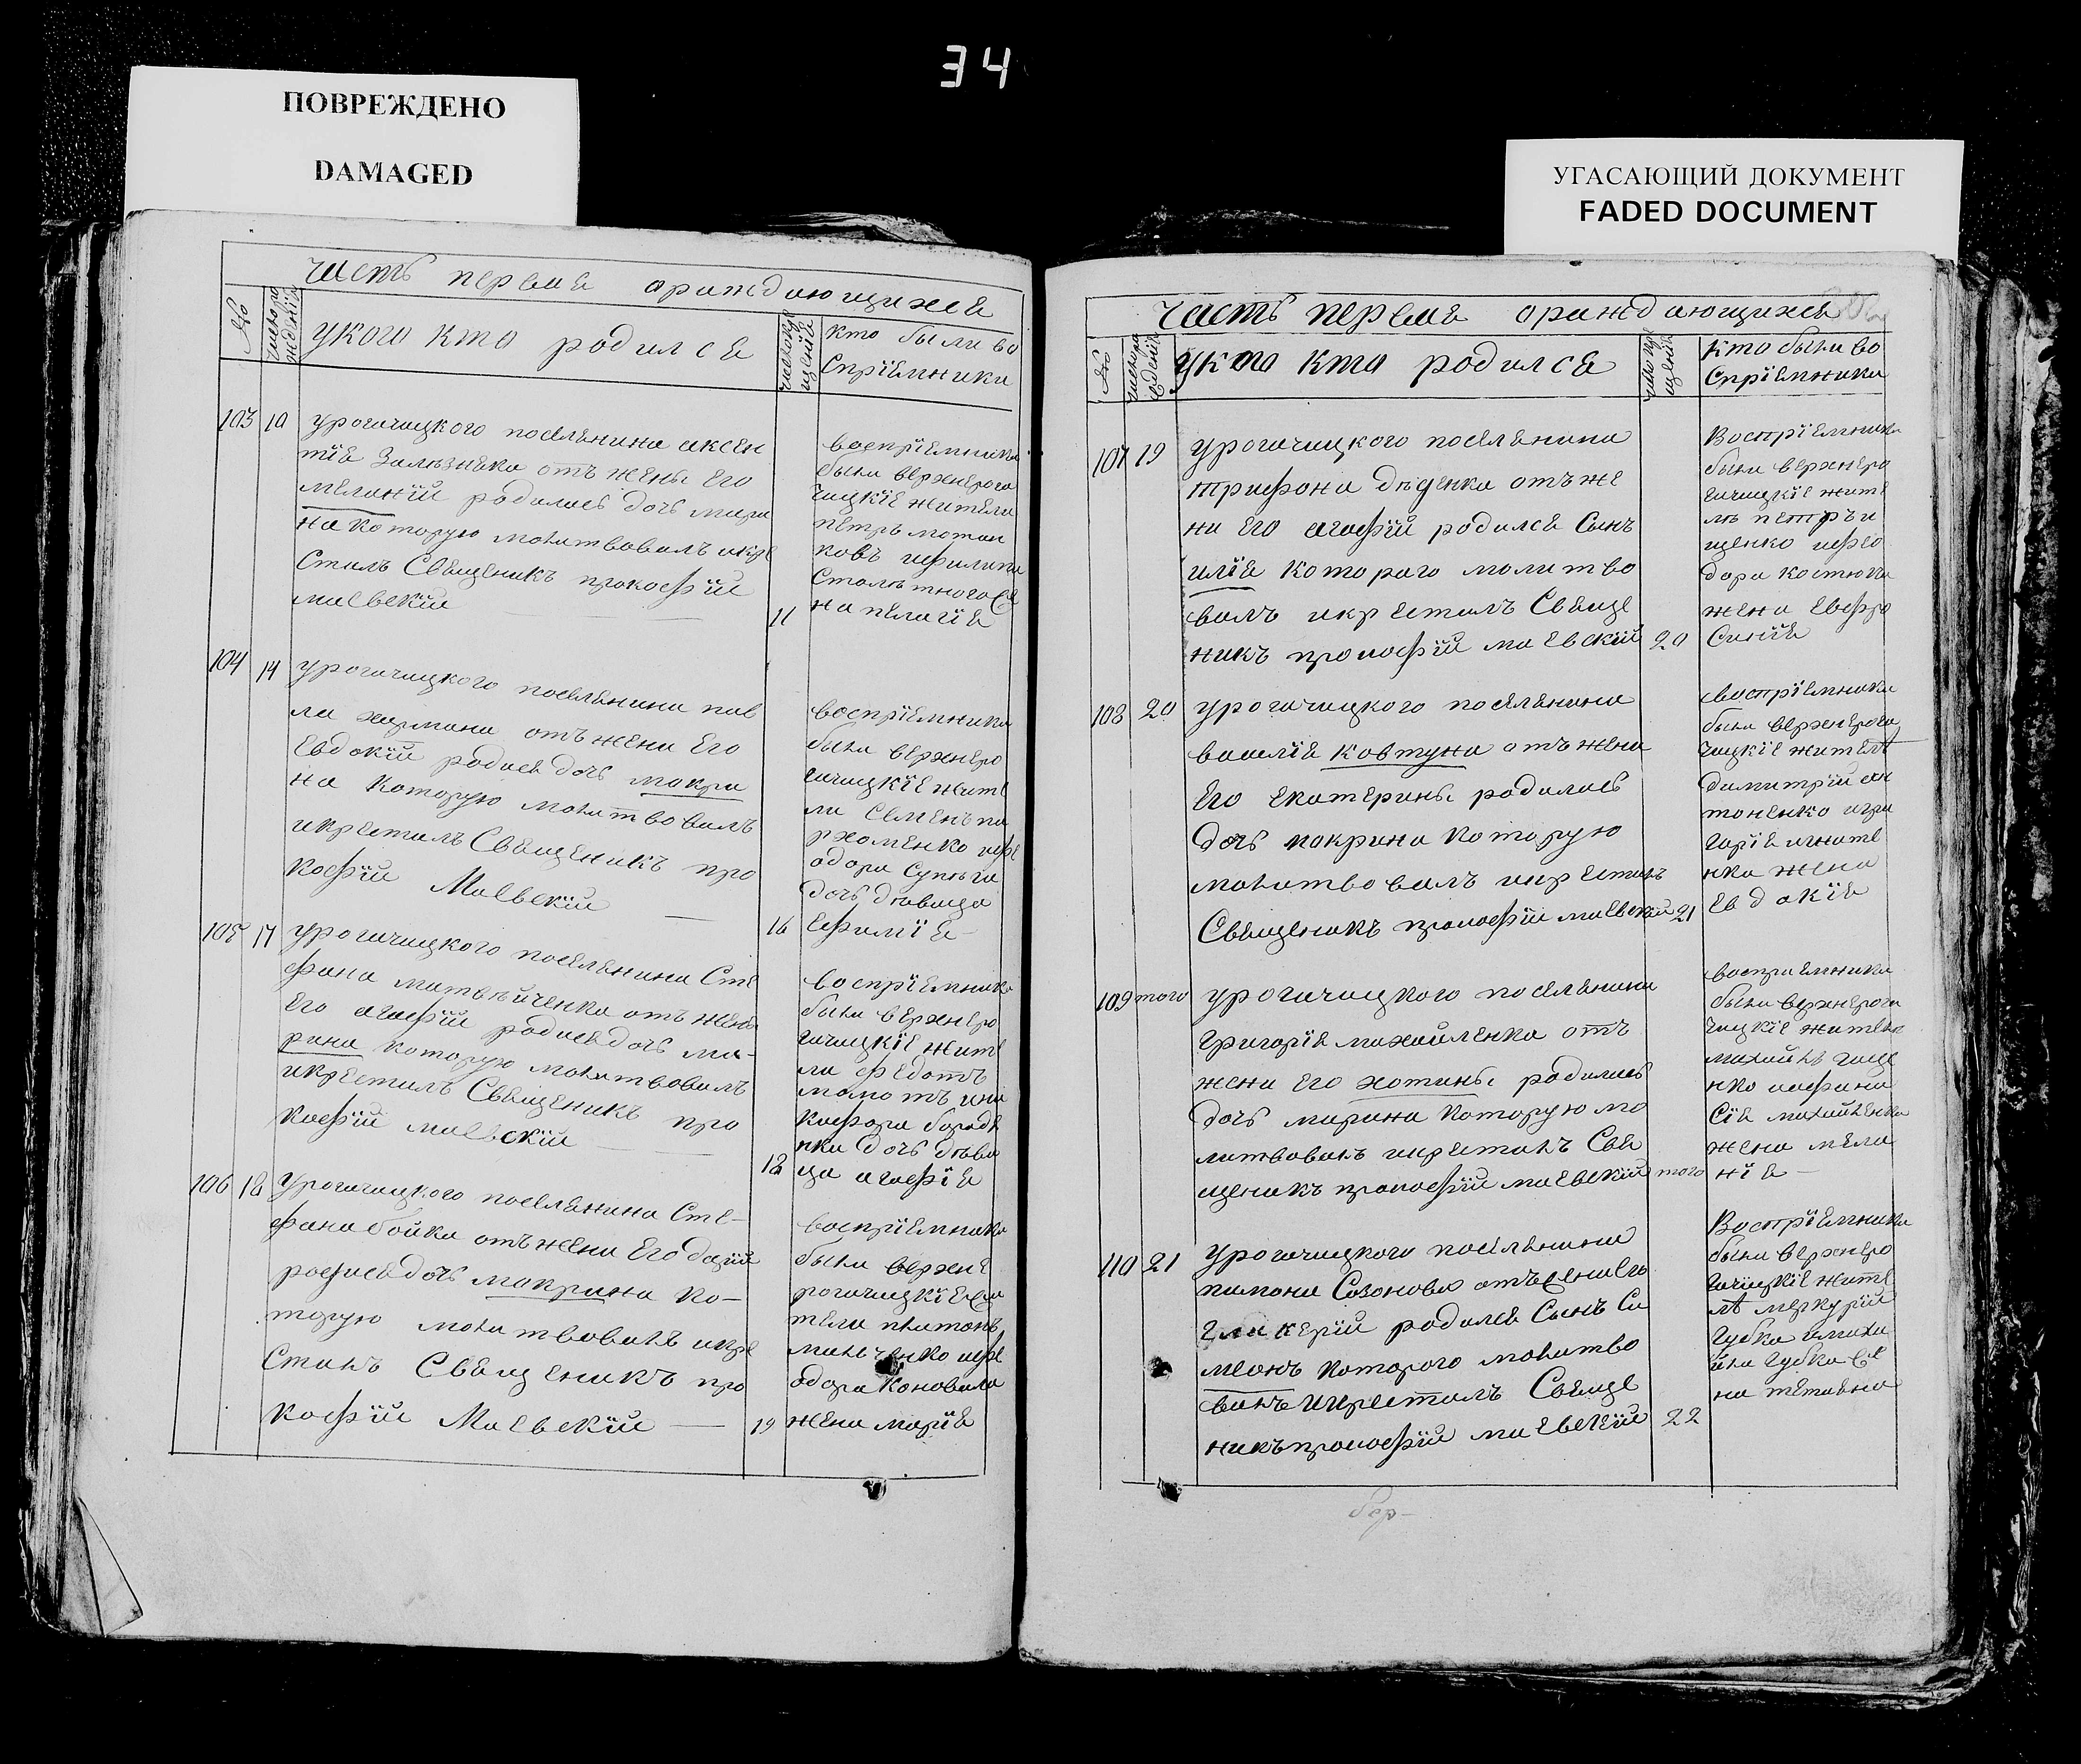 34
ПОВРЕЖДЕНО
DAMAGED
УГАСАЮЩИЙ ДОКУМЕНТ
FADED DOCUMENT
часть перваяораждающихся
№
число рождения
укого кто родился
число крещения
кто были во
спріемники
103 10
урогачицкого поселянина аксен
тія Зализняка отъ жены его
меланіи родилась дочь мари
на которую молитвовалъ икре
стилъ Священикъ прокофій
маевскій
11
воспріемники
были верхнерога
чицкіе жители
петръ
ковъ ифилипа
на пелагія
104 14
урогачицкого поселянина пав
ла хармана отъ жени Его
Евдокіи родися дочь макри
на которую молитвовалъ
икрестилъ Священикъ про
кофій Маевскій
16
воспріемники
были верхнеро
гачицкіе жите
ли семенъ па
рхоменко ифе
одора
дочь дѣвица
ефимія
105 17
урогачицкого поселянина Сте
фана матвѣйченка отъ жены
Его агафіи родися дочь ма-
рина которую молитвовалъ
икрестилъ Священикъ про
кофій маевскій
18
воспріемники
были верхнеро
гачицкіе жите
ли федотъ
мамотъ ини
кифора бородѣ
нка дочь дѣви
ца агафія
106 18
Урогачицкого поселянина Сте-
фана бойка отъ жени Его
родися дочь макрина ко-
торую молитвовалъ икре
стилъ Священикъ про
кофій Маевскій
19
воспріемники
были верхне
рогачицкіе жи
тели платонъ
ифе
одора коновала
жена марія
часть первая ораждающихся
№
укого кто родился
кто были во
спріемники
107 19
урогачицкого поселянина
трифона дѣденка отъ же
ни его агафіи родился Сынъ
илія которого молитво
валъ икрестилъ Свяще
никъ прокофій маевскій
20
Воспріемники
были верхнеро
гачицкіе жите
лѣ петръ и
щенко ифео
дора костюка
жена Евфро
Синія
108 20
урогачицкого поселянина
василія ковтуна отъ жени
Его екатерины родилась
дочь макрина которую
молитвовалъ икрестилъ
Священикъ прокофій маевскій
21
воспріемники
были верхнерога
чицкіе жителѣ
димитрій ан
тоненко игри
горія игнате
нка жена
Евдокія
109 того
урогачицкого поселянина
григорія михайленка отъ
жени его хотины родилась
дочь марина которую мо
литвовалъ икрестилъ Свя
щеникъ прокофій маевскій
того
воспріемники
были верхнерога
чицкіе жители
михаилъ гаще
нко иафана
сія михайленка
жена мела
нія
110 21
урогачицкого поселянина
пимона Созонова отъ жени его
гликеріи родился Сынъ Си
меонъ которого молитво
валъ икрестилъ Свяще
никъ прокофій маевскій
22
Воспріемники
были верхнеро
гачицкіе жите
лѣ меркурій
Губка имиха
ила Губки же
на татьяна